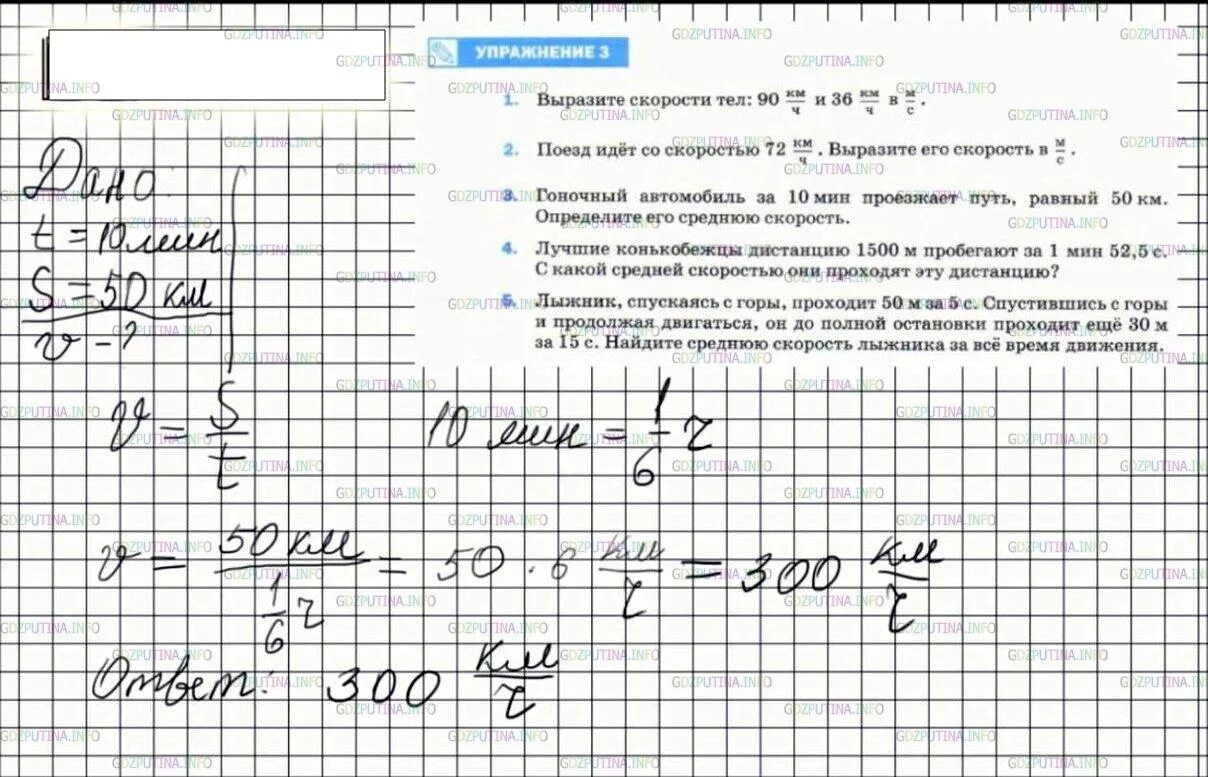 УПРАЖНЕНИЕ 3
1. Выразите скорости тел: 90 км/ч и 36 км/ч в м/с.
2. Поезд идёт со скоростью 72 км/ч. Выразите его скорость в м/с.
3. Гоночный автомобиль за 10 мин проезжает путь, равный 50 км.
Определите его среднюю скорость.
4. Лучшие конькобежцы дистанцию 1500 м пробегают за 1 мин 52,5 с.
С какой средней скоростью они проходят эту дистанцию?
5. Лыжник, спускаясь с горы, проходит 50 м за 5 с. Спустившись с горы
и продолжая двигаться, он до полной остановки проходит ещё 30 м
за 15 с. Найдите среднюю скорость лыжника за всё время движения.
Дано:
t = 10 мин
S = 50 км
v - ?
v = S/t 10 мин = 1/6 ч
v = 50 км / 1/6 ч = 50 · 6 км/ч = 300 км/ч
Ответ: 300 км/ч
GDZPUTINA.INFO